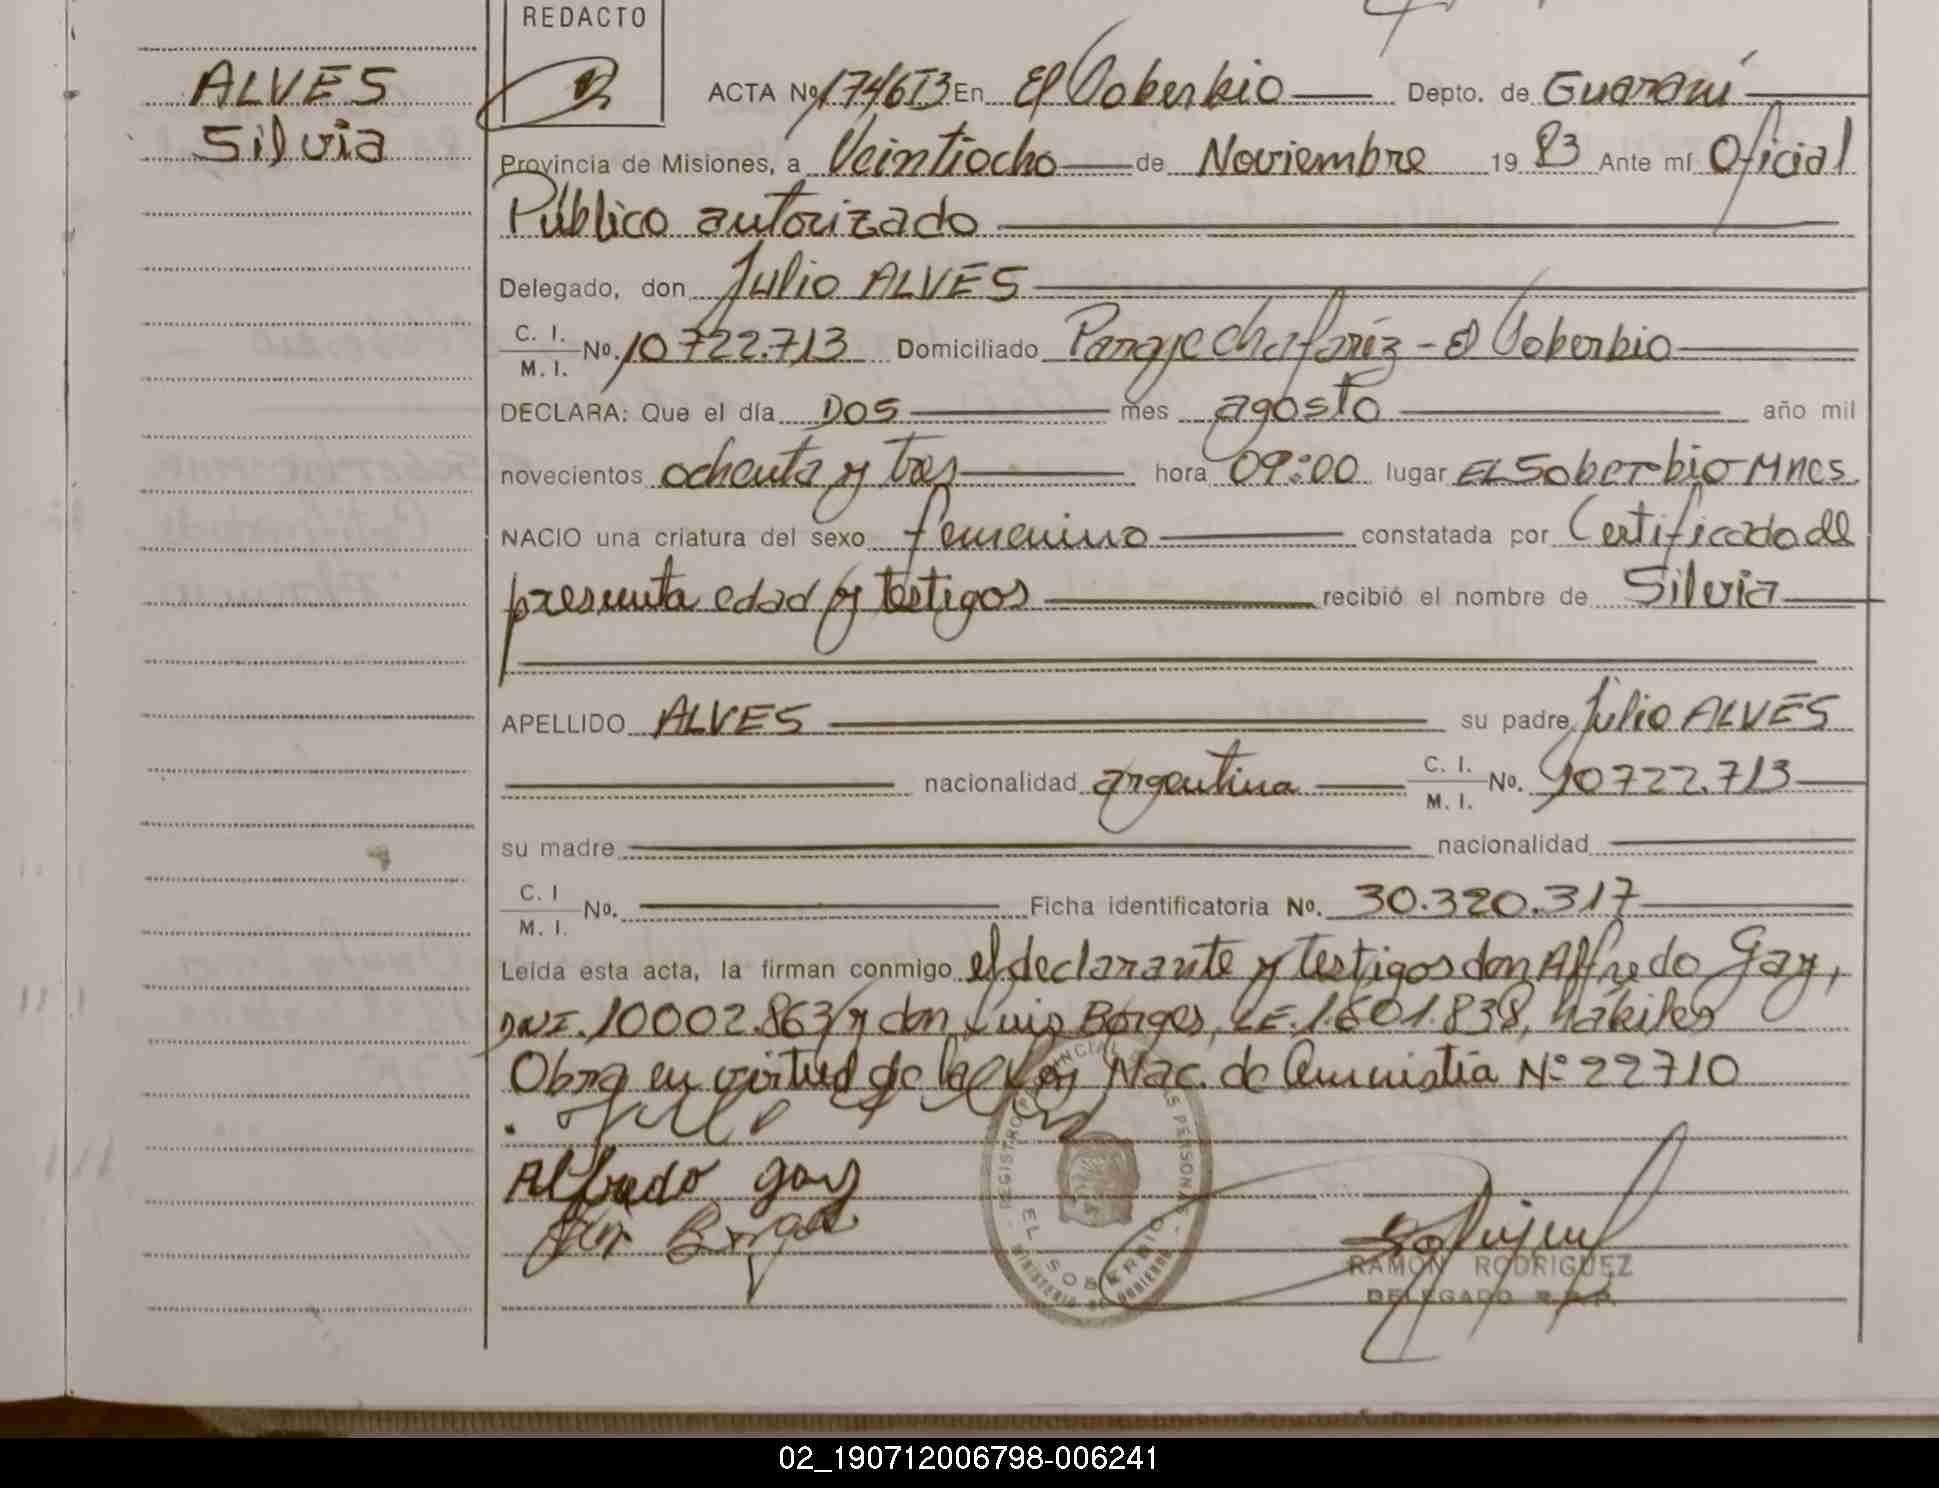 REDACTO
ALVES
Silvia
ACTA Nº 174613 En El Soberbio Depto. de Guaraní
Provincia de Misiones, a Veintiocho de Noviembre 1983 Ante mí Oficial
Público autorizado
Delegado, don Julio ALVES
C. I.
M. I. Nº. 10722.713 Domiciliado Paraje Chafariz - El Soberbio
DECLARA: Que el día DOS mes agosto año mil
novecientos ochenta y tres hora 09:00 lugar EL Soberbio Mnes.
NACIO una criatura del sexo femenino constatada por Certificado de
presunta edad y testigos recibió el nombre de Silvia
APELLIDO ALVES su padre Julio ALVES
nacionalidad argentina C. I.
M. I. Nº. 10722.713
su madre nacionalidad
C. I
M. I. Nº. Ficha identificatoria Nº. 30.320.317
Leída esta acta, la firman conmigo el declarante y testigos don Alfredo Gay,
DNI. 10002.863 y don Luis Borges, LE. 1.601.838, hábiles
Obra en virtud de la Ley Nac. de Amnistía Nº 22710
Alfredo gay
REGISTRO PROVINCIAL DE LAS PERSONAS
EL SOBERBIO
MINISTERIO DE GOBIERNO
RAMON RODRIGUEZ
DELEGADO R.P.P.
02_190712006798-006241